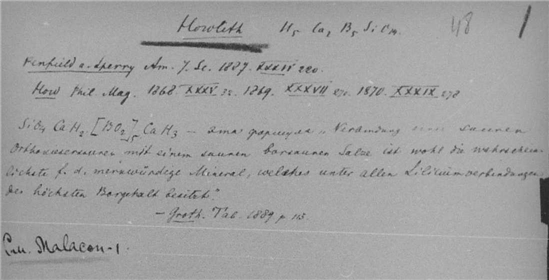 Howlith H₅ Ca₂ B₅ Si O₁₄. 48 1
Penfield a. Sperry Am. J. Sc. 1887. XXXIV 220.
How Phil. Mag. 1868 XXXV 32. 1869. XXXVII 270. 1870. XXXIX 278
SiO₄ CaH₂ [BO₂]₅ CaH₃ — эта формула „Verbindung eines sauren
Orthokieselsauren mit einem sauren borsauren Salze ist wohl die wahrschein-
lichste f. d. merkwürdige Mineral, welches unter allen Siliciumverbindungen
den höchsten Borgehalt besitzt"
— Groth. Tab. 1889 p. 113.
Malacon-1.